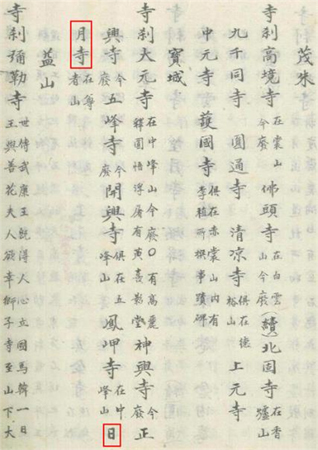 茂朱
寺刹高境寺在裳山今廢佛頭寺在白雲山今廢(續)北固寺在香爐山
九千同寺圓通寺清凉寺俱在德裕山上元寺
中元寺護國寺俱在赤裳山內有李植所撰事蹟碑
寶城
寺刹大元寺在中峰山今廢〇有高麗釋圓悟有黃喜影堂神興寺今廢正
興寺今廢五峰寺今廢開興寺俱在五峰山鳳岬寺在中峰山日
月寺在尊者山
益山
寺刹彌勒寺世傳武康王旣得人心立國馬韓一日王與善花夫人欲幸獅子寺至山下大